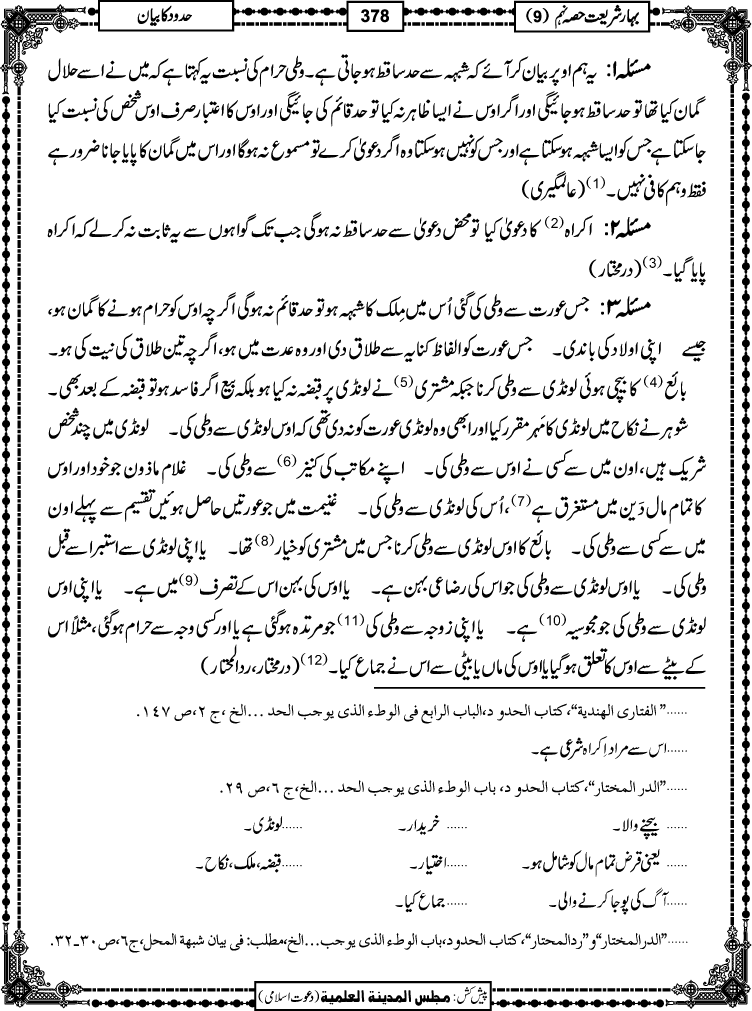 بہارِشریعت حصہ نہم (9)
378
حدود کا بیان
مسئلہ ۱: یہ ہم اوپر بیان کر آئے کہ شبہہ سے حد ساقط ہوجاتی ہے۔ وطی حرام کی نسبت یہ کہتا ہے کہ میں نے اسے حلال
گمان کیا تھا تو حد ساقط ہوجائیگی اور اگر اوس نے ایسا ظاہر نہ کیا تو حد قائم کی جائیگی اور اوس کا اعتبار صرف اوس شخص کی نسبت کیا
جاسکتا ہے جس کو ایسا شبہہ ہوسکتا ہے اور جس کو نہیں ہوسکتا وہ اگر دعویٰ کرے تو مسموع نہ ہوگا اور اس میں گمان کا پایا جانا ضرور ہے
فقط وہم کافی نہیں۔(1) (عالمگیری)
مسئلہ ۲: اکراہ(2) کا دعویٰ کیا تو محض دعویٰ سے حد ساقط نہ ہوگی جب تک گواہوں سے یہ ثابت نہ کرلے کہ اکراہ
پایا گیا۔(3) (درمختار)
مسئلہ ۳: جس عورت سے وطی کی گئی اُس میں مِلک کا شبہہ ہو تو حد قائم نہ ہوگی اگرچہ اوس کو حرام ہونے کا گمان ہو،
جیسے اپنی اولاد کی باندی۔ جس عورت کو الفاظ کنایہ سے طلاق دی اور وہ عدت میں ہو، اگرچہ تین طلاق کی نیت کی ہو۔
بائع(4) کا بیچی ہوئی لونڈی سے وطی کرنا جبکہ مشتری(5) نے لونڈی پر قبضہ نہ کیا ہو بلکہ بیع اگر فاسد ہو تو قبضہ کے بعد بھی۔
شوہر نے نکاح میں لونڈی کا مَہر مقرر کیا اور ابھی وہ لونڈی عورت کو نہ دی تھی کہ اوس لونڈی سے وطی کی۔ لونڈی میں چند شخص
شریک ہیں، اون میں سے کسی نے اوس سے وطی کی۔ اپنے مکاتب کی کنیز(6) سے وطی کی۔ غلام ماذون جو خود اور اوس
کا تمام مال دَین میں مستغرق ہے(7)، اُس کی لونڈی سے وطی کی۔ غنیمت میں جو عورتیں حاصل ہوئیں تقسیم سے پہلے اون
میں سے کسی سے وطی کی۔ بائع کا اوس لونڈی سے وطی کرنا جس میں مشتری کو خیار(8) تھا۔ یا اپنی لونڈی سے استبرا سے قبل
وطی کی۔ یا اوس لونڈی سے وطی کی جو اس کی رضاعی بہن ہے۔ یا اوس کی بہن اس کے تصرف(9) میں ہے۔ یا اپنی اوس
لونڈی سے وطی کی جو مجوسیہ(10) ہے۔ یا اپنی زوجہ سے وطی کی(11) جو مرتدہ ہوگئی ہے یا اور کسی وجہ سے حرام ہوگئی، مثلاً اس
کے بیٹے سے اوس کا تعلق ہوگیا یا اوس کی ماں یا بیٹی سے اس نے جماع کیا۔(12) (درمختار، ردالمحتار)
......”الفتاری الهندية“، كتاب الحدود، الباب الرابع فى الوطء الذى يوجب الحد ...الخ، ج ۲، ص ۱۴۷.
......اس سے مراد اِکراہ شرعی ہے۔
......”الدر المختار“، كتاب الحدود، باب الوطء الذى يوجب الحد ...الخ، ج ۶، ص ۲۹.
...... بیچنے والا۔ ...... خریدار۔ ......لونڈی۔
...... یعنی قرض تمام مال کو شامل ہو۔ ......اختیار۔ ......قبضہ، ملک، نکاح۔
......آگ کی پوجا کرنے والی۔ ...... جماع کیا۔
......”الدرالمختار“ و ”ردالمحتار“، كتاب الحدود، باب الوطء الذى يوجب...الخ، مطلب: فى بيان شبهة المحل، ج۶، ص۳۰۔۳۲.
پیش کش: مجلس المدينة العلمية (دعوت اسلامی)